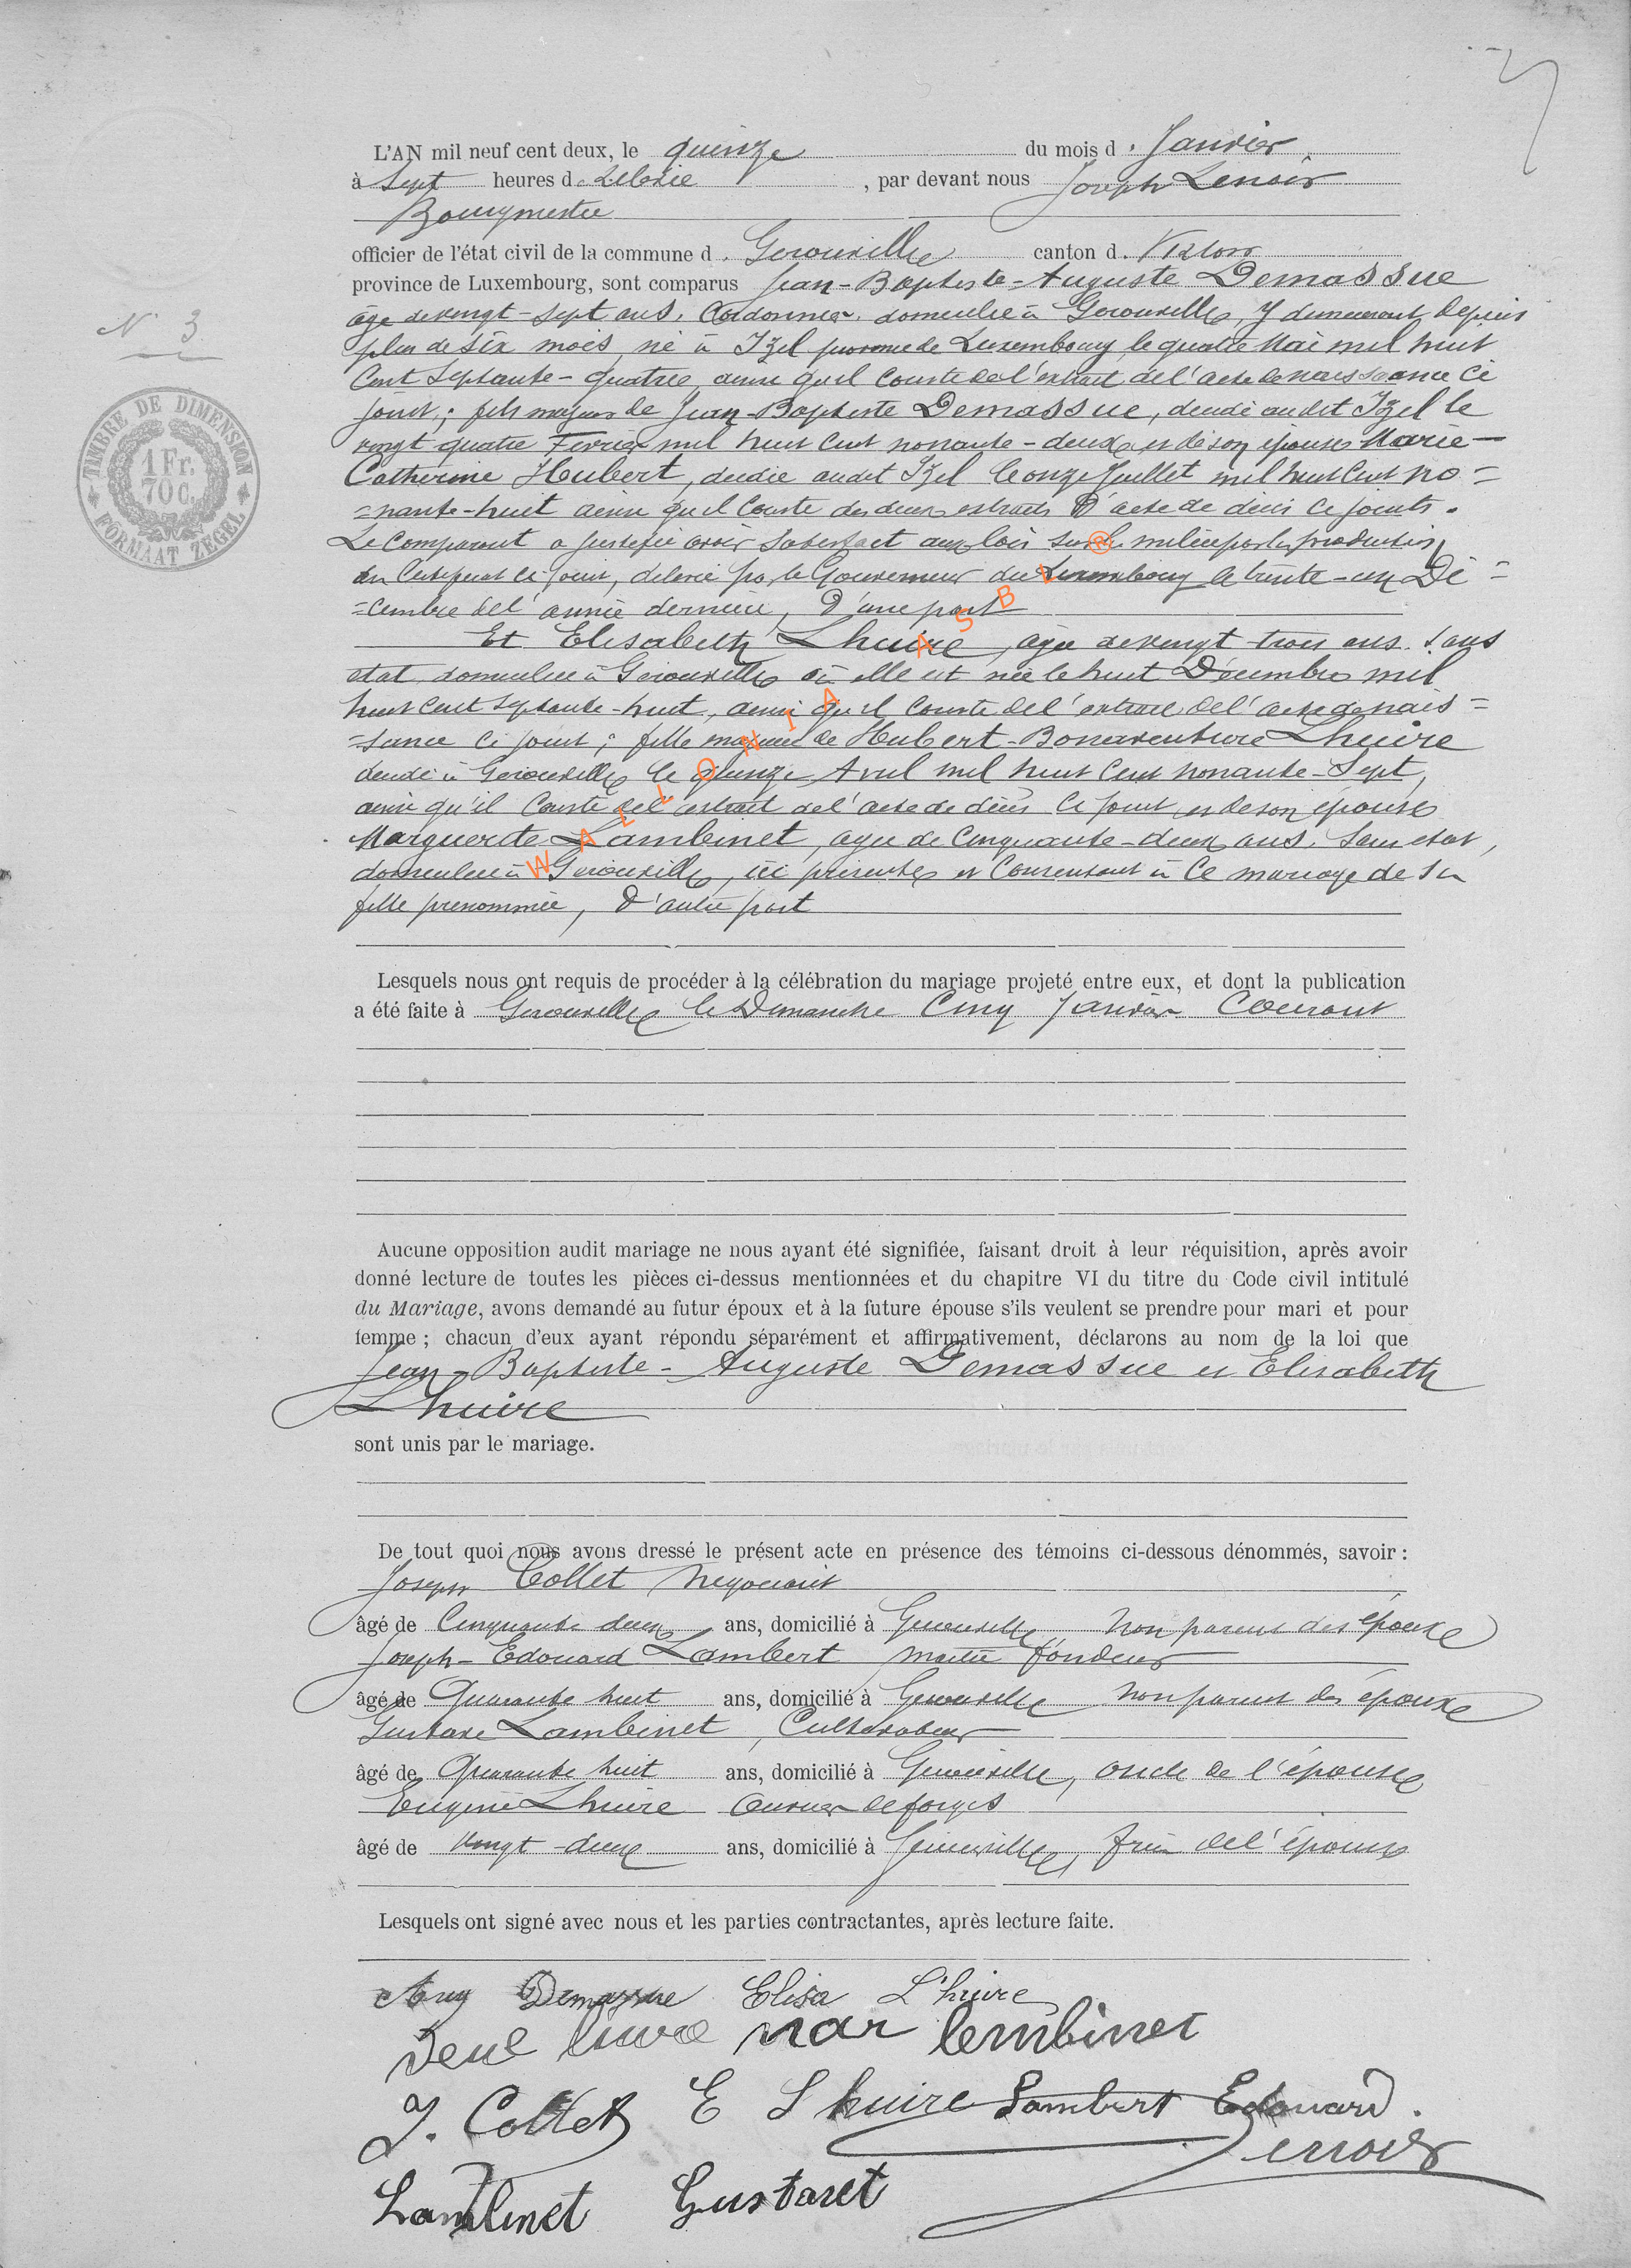 N° 3
TIMBRE DE DIMENSION
1 Fr.
70 C.
FORMAAT ZEGEL
L'AN mil neuf cent deux, le quinze du mois d. Janvier
à Sept heures d. , par devant nous Joseph Lenoir
Bourgmestre
officier de l'état civil de la commune d. Gerouville canton d. Virton
province de Luxembourg, sont comparus Jean-Baptiste-Auguste Demassue
âgé de vingt-sept ans, Cordonnier, domicilié à Gerouville, y demeurant depuis
plus de six mois, né à Izel province de Luxembourg, le quatre Mai mil huit
Cent Septante-quatre, ainsi qu'il conste de l'extrait de l'acte de naissance ci
joint; fils majeur de Jean-Baptiste Demassue, décédé audit Izel le
vingt quatre Fevrier mil huit Cent nonante-deux et de son épouse Marie-
Catherine Hubert, décédée audit Izel le onze Juillet mil huit Cent no=
=nante-huit ainsi qu'il conste des deux extraits d'acte de décès ci joints.
Le comparant a justifié avoir satisfait aux lois sur la milice par la production
du Certificat ci joint, délivré par le Gouverneur du Luxembourg le trente-un Dé=
=cembre de l'année dernière, D'une part
Et Elisabeth Lhuire, agée de vingt-trois ans. Sans
état domiciliée à Gerouville où elle est née le huit Décembre mil
huit Cent Septante-huit, ainsi qu'il conste de l'extrait de l'acte de nais=
=sance ci joint; fille majeure de Hubert-Bonaventure Lhuire
décédé à Gerouville le quinze Avril mil huit Cent nonante-Sept,
ainsi qu'il conste de l'extrait de l'acte de décès ci joint et de son épouse
Marguerite Lambinet, agée de Cinquante-deux ans, Sans état,
domiciliée à Gerouville, ici présente et Consentant à ce mariage de sa
fille prénommée, D'autre part
WALLONIA ASBL ®
Lesquels nous ont requis de procéder à la célébration du mariage projeté entre eux, et dont la publication
a été faite à Gerouville le Dimanche Cinq Janvier Courant
Aucune opposition audit mariage ne nous ayant été signifiée, faisant droit à leur réquisition, après avoir
donné lecture de toutes les pièces ci-dessus mentionnées et du chapitre VI du titre du Code civil intitulé
du Mariage, avons demandé au futur époux et à la future épouse s'ils veulent se prendre pour mari et pour
femme ; chacun d'eux ayant répondu séparément et affirmativement, déclarons au nom de la loi que
Jean-Baptiste-Auguste Demassue et Elisabeth
Lhuire
sont unis par le mariage.
De tout quoi nous avons dressé le présent acte en présence des témoins ci-dessous dénommés, savoir :
Joseph Collet Négociant
âgé de Cinquante deux ans, domicilié à Gerouville Non parent des époux
Joseph-Edouard Lambert maître fondeur
âgé de Quarante huit ans, domicilié à Gerouville Non parent des époux
Gustave Lambinet, Cultivateur
âgé de Quarante huit ans, domicilié à Gerouville, oncle de l'épouse
Eugène Lhuire Ouvrier de forges
âgé de Vingt-deux ans, domicilié à Gerouville, frère de l'épouse
Lesquels ont signé avec nous et les parties contractantes, après lecture faite.
Aug Demassue Elisa L'huire
mar lembinet
J. Collet E Lhuire Lambert Edouard.
Lenoir
Lambinet Gustave